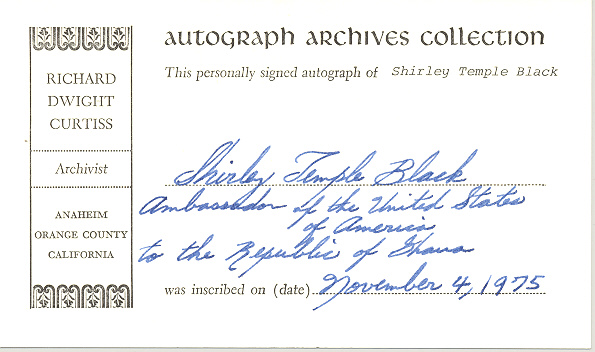 AUTOGRAPH ARCHIVES COLLECTION
This personally signed autograph of Shirley Temple Black
RICHARD
DWIGHT
CURTISS
Archivist
ANAHEIM
ORANGE COUNTY
CALIFORNIA
Shirley Temple Black
Ambassador of the United States
of America
to the Republic of Ghana
was inscribed on (date) November 4, 1975